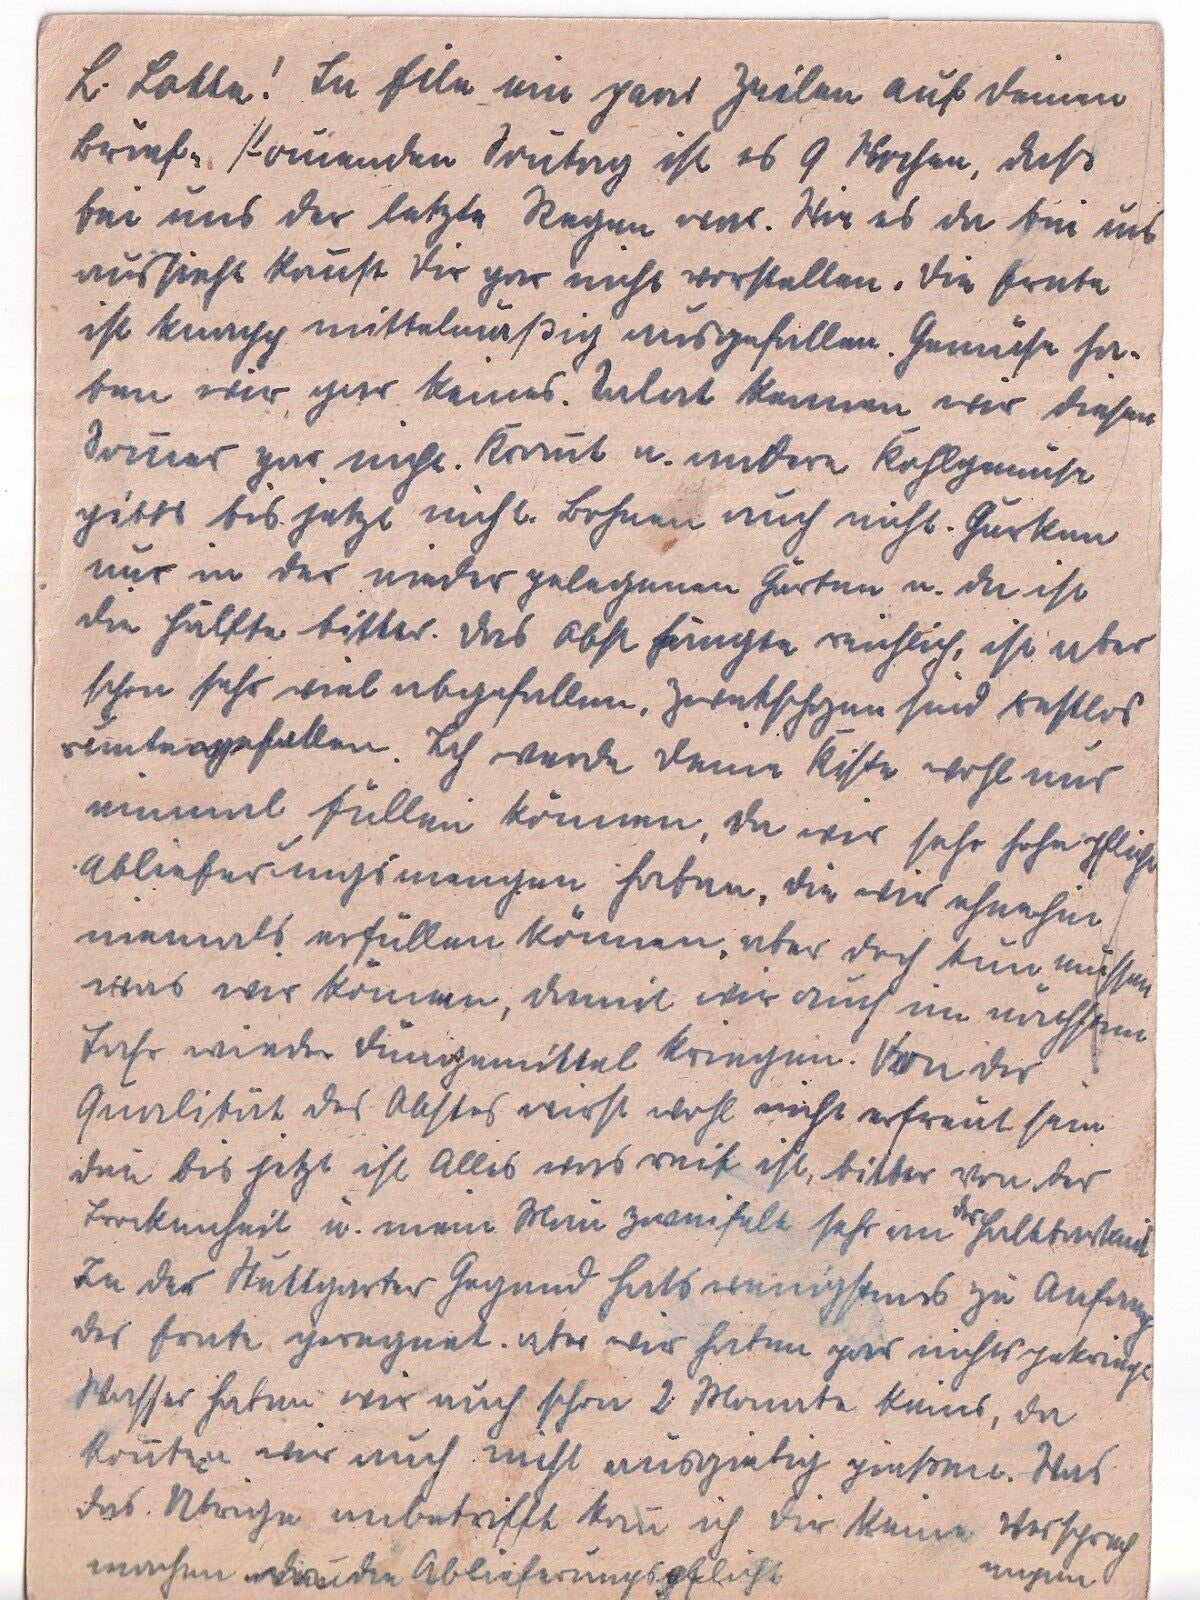 L. Lotte! In Eile ein paar Zeilen auf deinen
Brief. Kommenden Sontag ist es 9 Wochen, dass
bei uns der letzte Regen war. Wie es da bei uns
aussieht kanst Dir gar nicht vorstellen. Die Ernte
ist knapp mittelmäßig ausgefallen. Gemüse ha-
ben wir gar keines. Salat kennen wir diesen
Sommer gar nicht. Kraut u. andere Kohlgemüse
gibts bis jetzt nicht. Bohnen auch nicht. Gurken
nur in der nieder gelegenen Gärten u. da ist
die Hälfte bitter. Das Obst hängte reichlich, ist aber
schon sehr viel abgefallen, Zwetschgen sind restlos
runtergefallen. Ich werde deine Kiste wohl nur
einmal füllen können, da wir sehr hohe Pflicht
Ablieferungsmengen haben, die wir ohnehin
niemals erfüllen können, aber doch tun müssen
was wir können, damit wir auch im nächsten
Jahr wieder Düngemittel kriegen. Von der
Qualität des Obstes wirst wohl nicht erfreut sein
den bis jetzt ist Alles was reif ist, bitter von der
Trockenheit u. mein Man zweifelt sehr an der Haltbarkeit
In der Stuttgarter Gegend hats wenigstens zu Anfang
der Ernte geregnet. aber wir haben gar nichts gekriegt
Wasser haben wir auch schon 2 Monate keins, da
konten wir auch nicht ausgiebig gießen. Was
das Übrige anbetrifft kan ich Dir keine Versprech
machen den die Ablieferungspflicht ungen